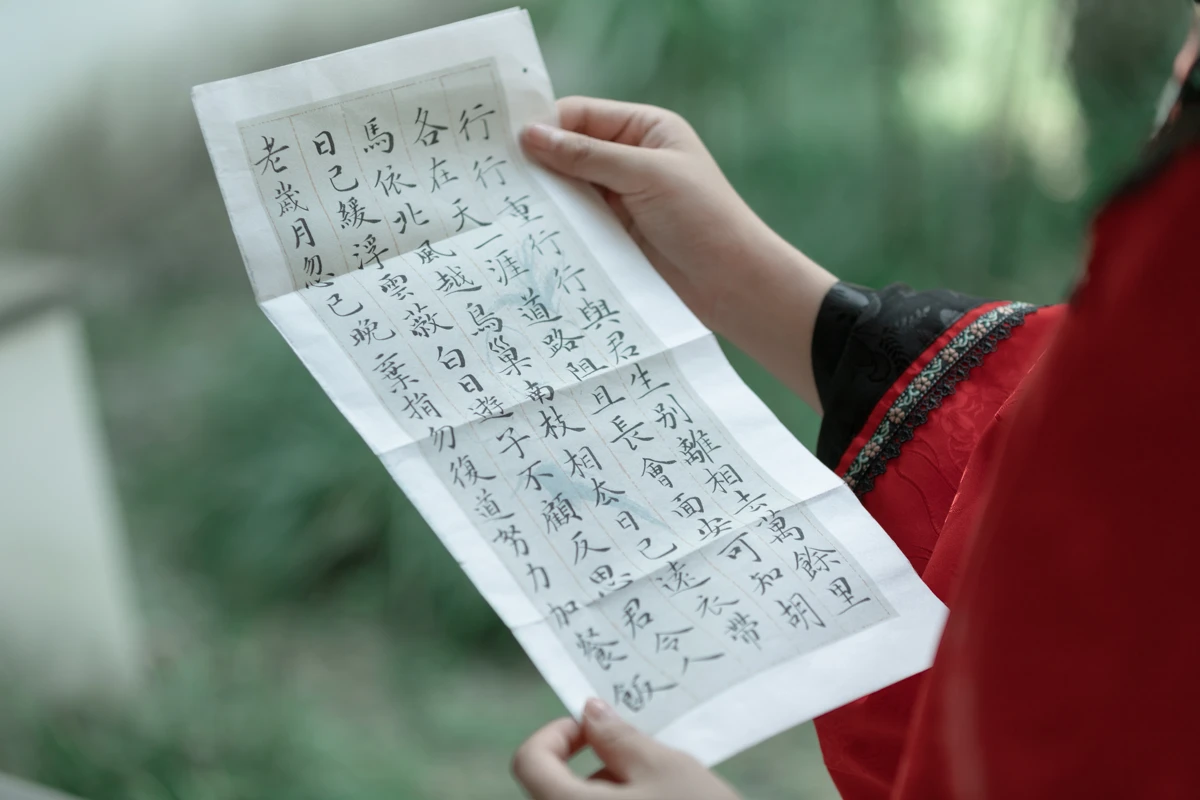 行行重行行與君生別離相去萬餘里
各在天一涯道路阻且長會面安可知胡
馬依北風越鳥巢南枝相去日已遠衣帶
日已緩浮雲蔽白日遊子不顧反思君令人
老歲月忽已晚棄捐勿復道努力加餐飯